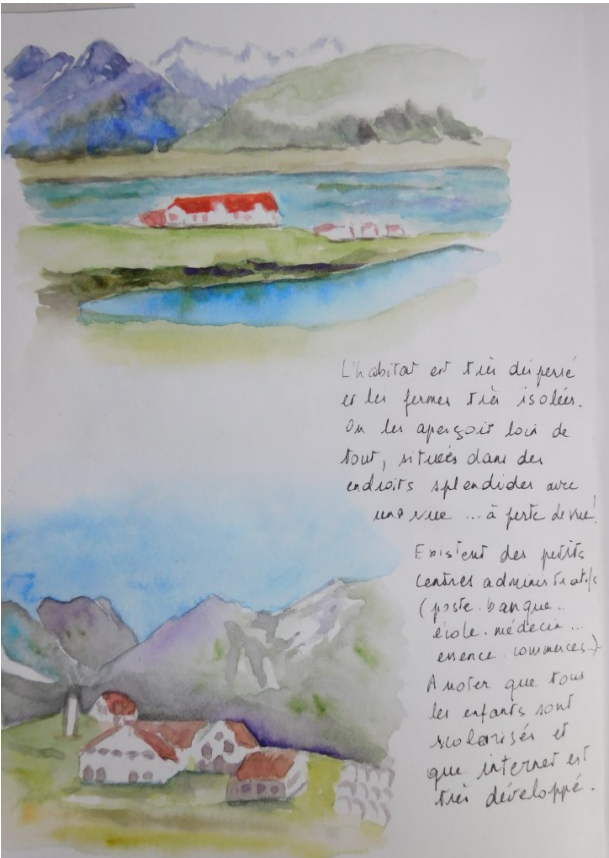 L'habitat est très dispersé
et les fermes très isolées.
On les aperçoit loin de
tout, situées dans des
endroits splendides avec
une vue ... à perte de vue !
Existent des petits
centres administratifs
(poste. banque..
école. médecin...
essence. commerces)
A noter que tous
les enfants sont
scolarisés et
que internet est
très développé.